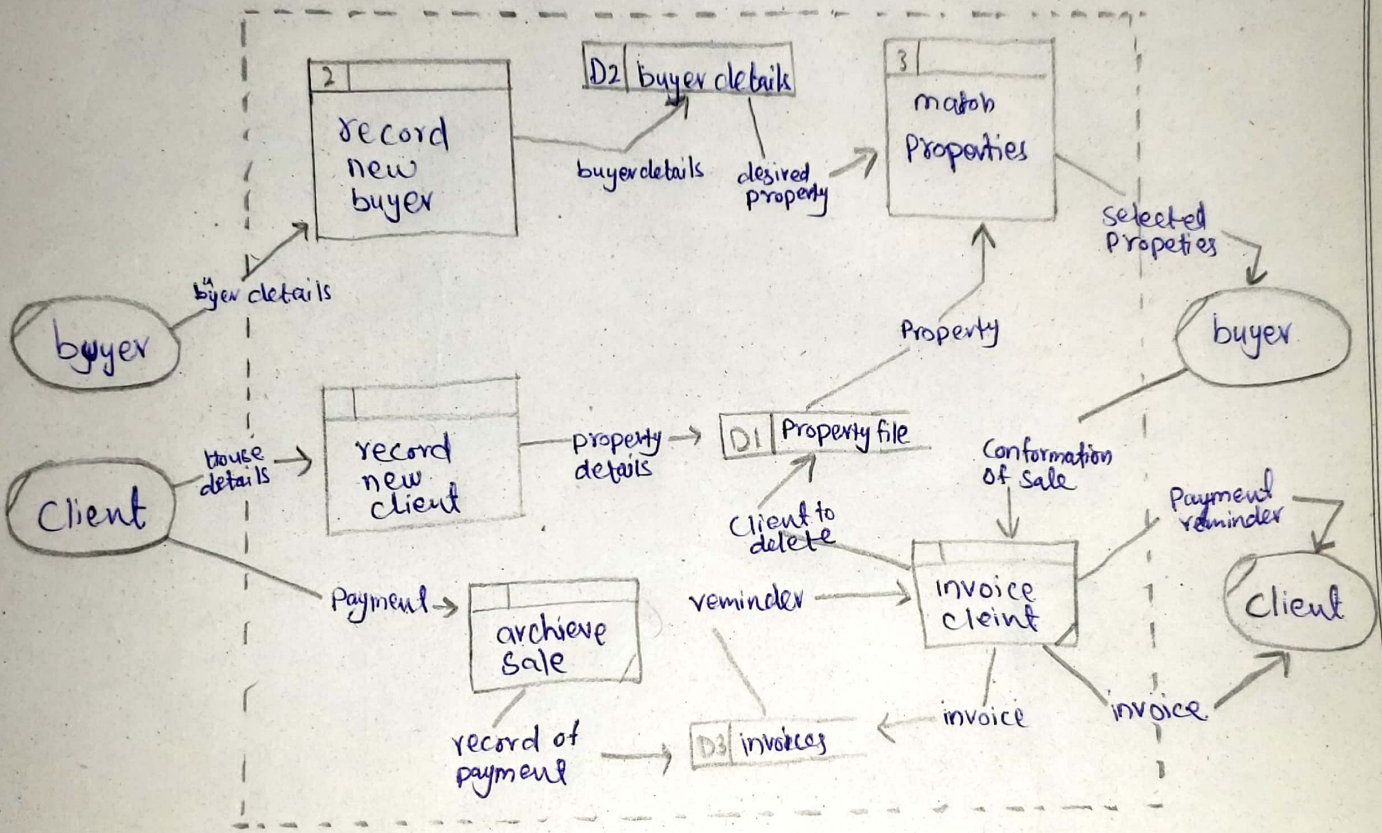 2
record
new
buyer
D2 buyer details
3
match
Properties
buyer details
desired
property
selected
Propeties
buyer details
buyer
buyer
Property
record
new
client
property
details
D1 Property file
House
details
Client
Conformation
of sale
Payment
reminder
Client to
delete
Payment
archieve
sale
reminder
invoice
cleint
Client
record of
payment
D3 invoices
invoice
invoice